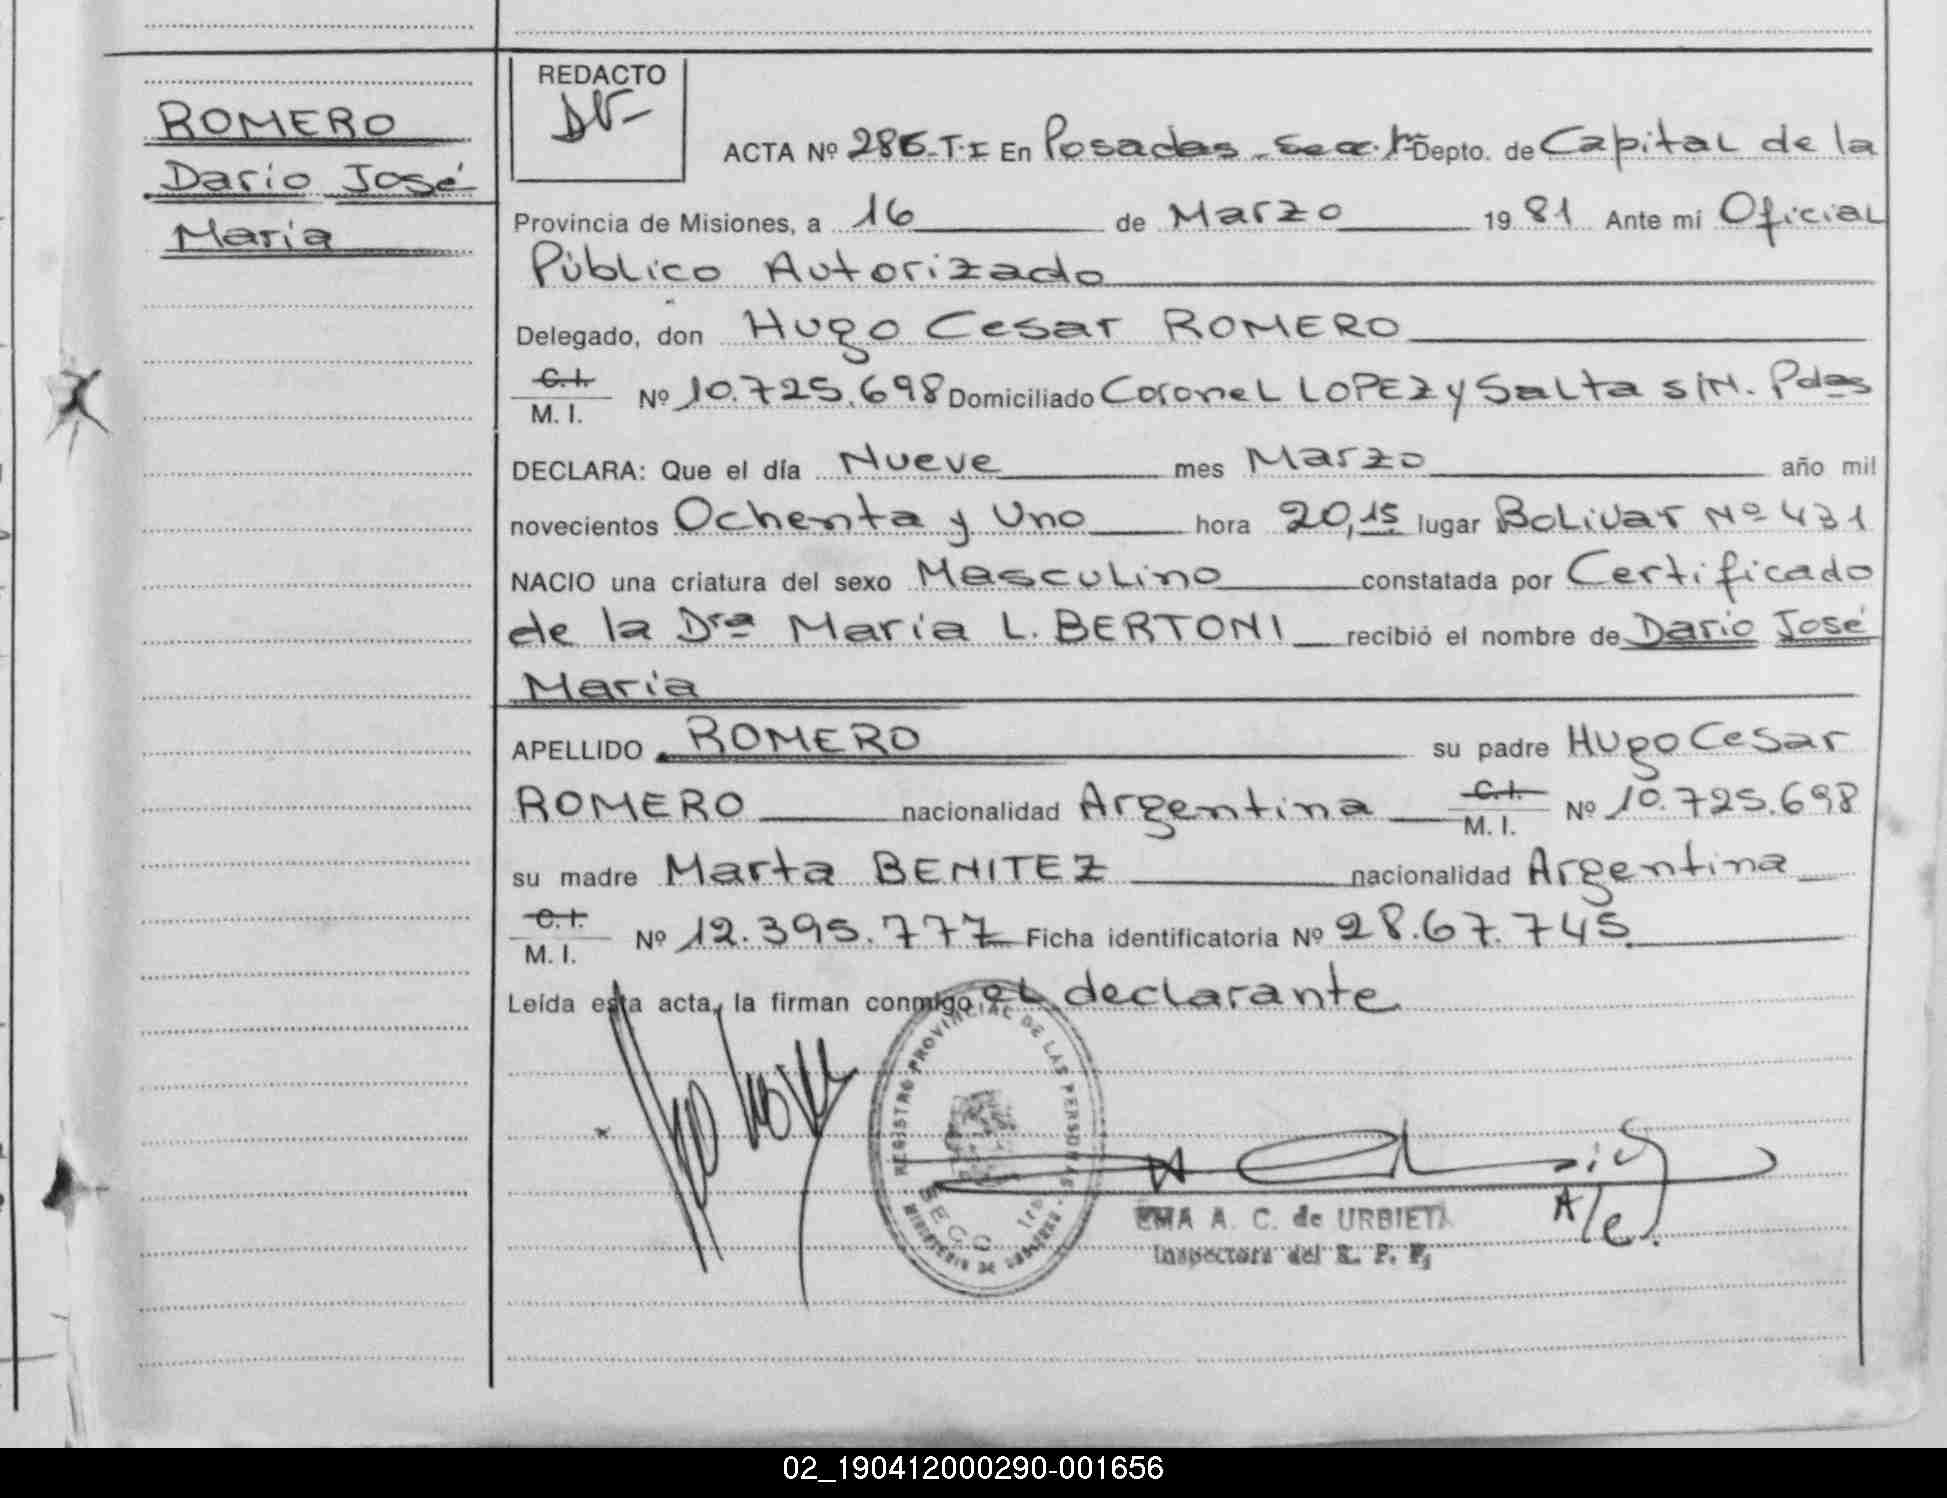 ROMERO
Dario José
Maria
REDACTO
ACTA Nº 286-T-I En Posadas Secc. 1ra Depto. de Capital de la
Provincia de Misiones, a 16 de Marzo 1981 Ante mi Oficial
Público Autorizado
Delegado, don Hugo Cesar ROMERO
C.I.
M. I. Nº 10.725.698 Domiciliado Coronel LOPEZ y Salta S/N. Pdas
DECLARA: Que el día Nueve mes Marzo año mil
novecientos Ochenta y Uno hora 20,15 lugar Bolivar Nº 431
NACIO una criatura del sexo Masculino constatada por Certificado
de la Dra Maria L. BERTONI recibió el nombre de Dario José
Maria
APELLIDO ROMERO su padre Hugo Cesar
ROMERO nacionalidad Argentina C.I. M. I. Nº 10.725.698
su madre Marta BENITEZ nacionalidad Argentina
C.I.
M. I. Nº 12.395.777 Ficha identificatoria Nº 28.67.745
Leída esta acta, la firman conmigo el declarante
REGISTRO PROVINCIAL DE LAS PERSONAS
MINISTERIO DE GOBIERNO
SECC. 1ra
EMA A. C. de URBIETA
Inspectora del R. P. P.
A/c.
02_190412000290-001656